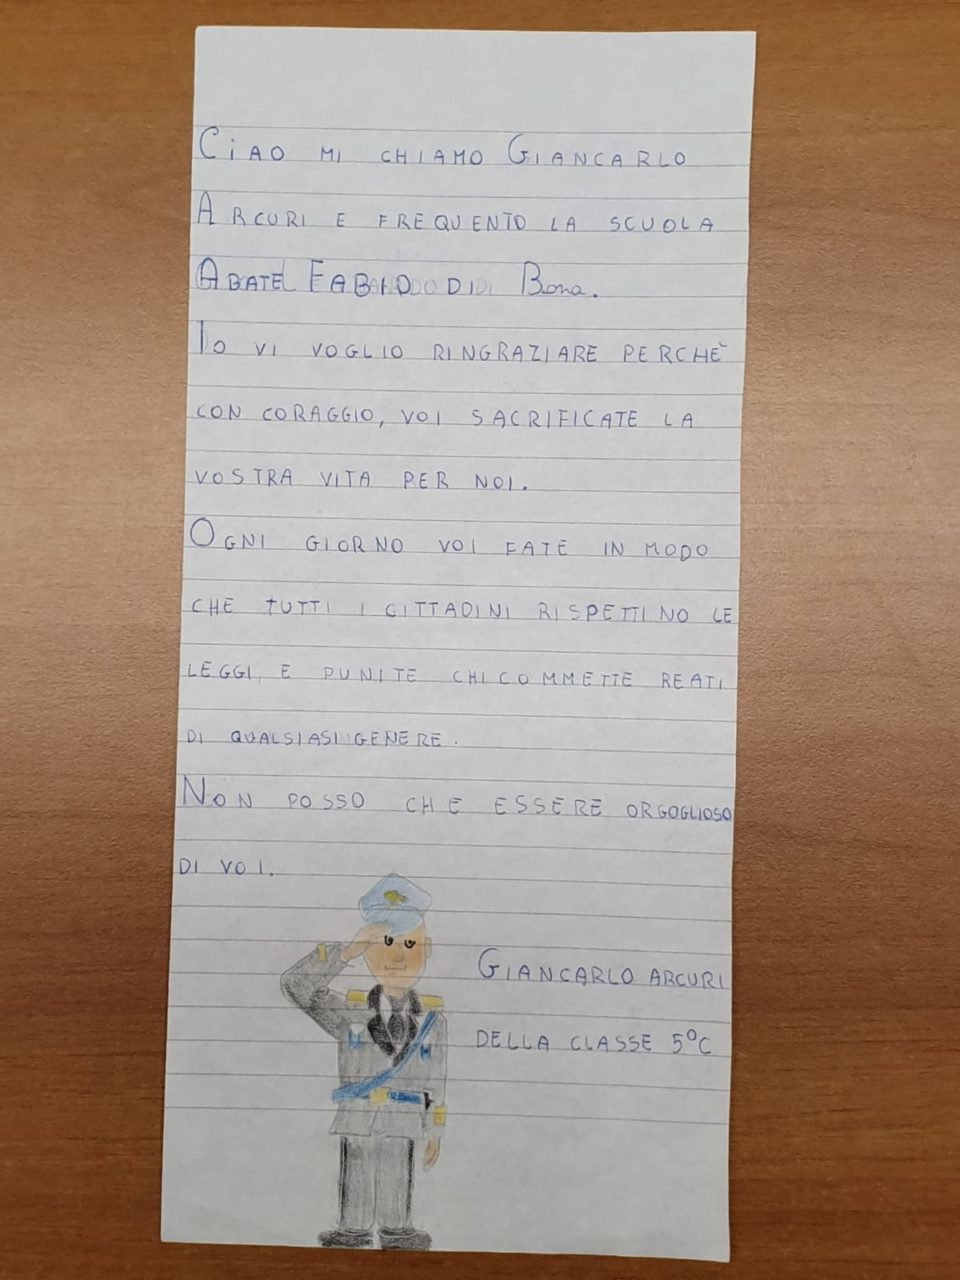 Ciao mi chiamo Giancarlo
Arcuri e frequento la scuola
Abate Fabio di Bona.
Io vi voglio ringraziare perchè
con coraggio, voi sacrificate la
vostra vita per noi.
Ogni giorno voi fate in modo
che tutti i cittadini rispettino le
leggi, e punite chi commette reati
di qualsiasi genere.
Non posso che essere orgoglioso
di voi.
Giancarlo Arcuri
della classe 5°C